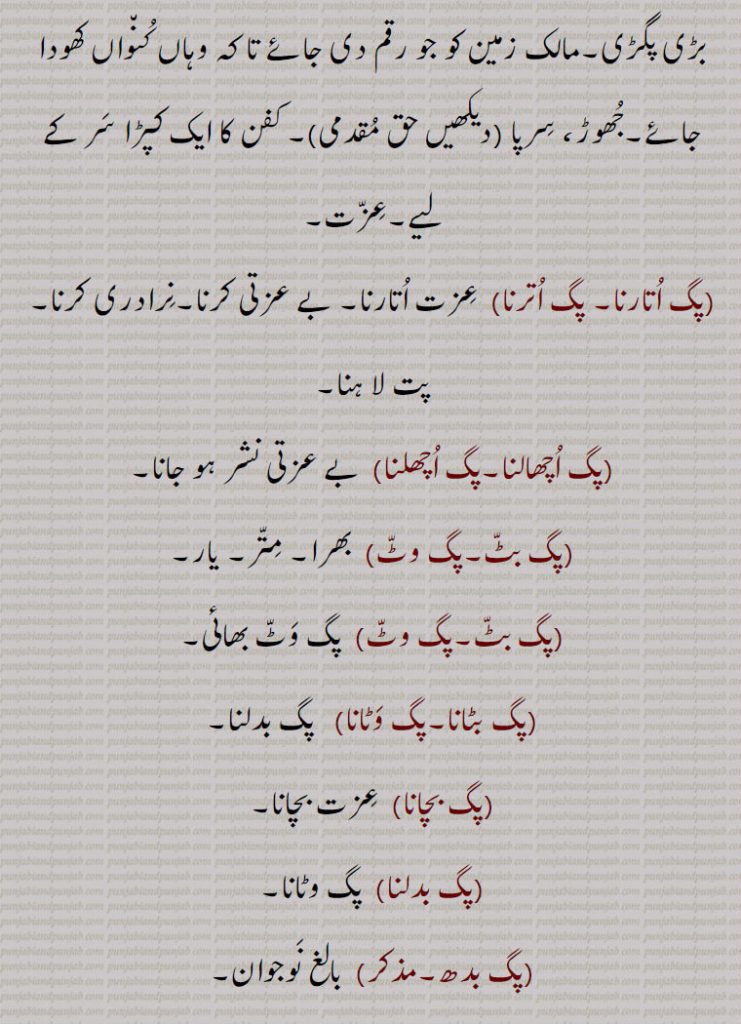 بڑی پگڑی۔مالک زمین کو جو رقم دی جائے تا کہ وہاں کُنّواں کھودا
جائے۔جُھوڑ، سِرپا (دیکھیں حق مُقدمی)۔ کفن کا ایک کپڑا سَر کے
لیے۔عِزّت۔
(پگ اُتارنا۔ پگ اُترنا) عِزت اُتارنا۔ بے عزتی کرنا۔نِرادری کرنا۔
پت لا ہنا۔
(پگ اُچھالنا۔پگ اُچھلنا) بے عزتی نشر ہو جانا۔
(پگ بٹّ۔پگ وٹّ) بھرا۔ مِتّر۔ یار۔
(پگ بٹّ۔پگ وٹّ) پگ وَٹّ بھائی۔
(پگ بٹانا۔پگ وَٹانا) پگ بدلنا۔
(پگ بچانا) عِزت بچانا۔
(پگ بدلنا) پگ وٹانا۔
(پگ بدھ۔مذکر) بالغ نَوجوان۔